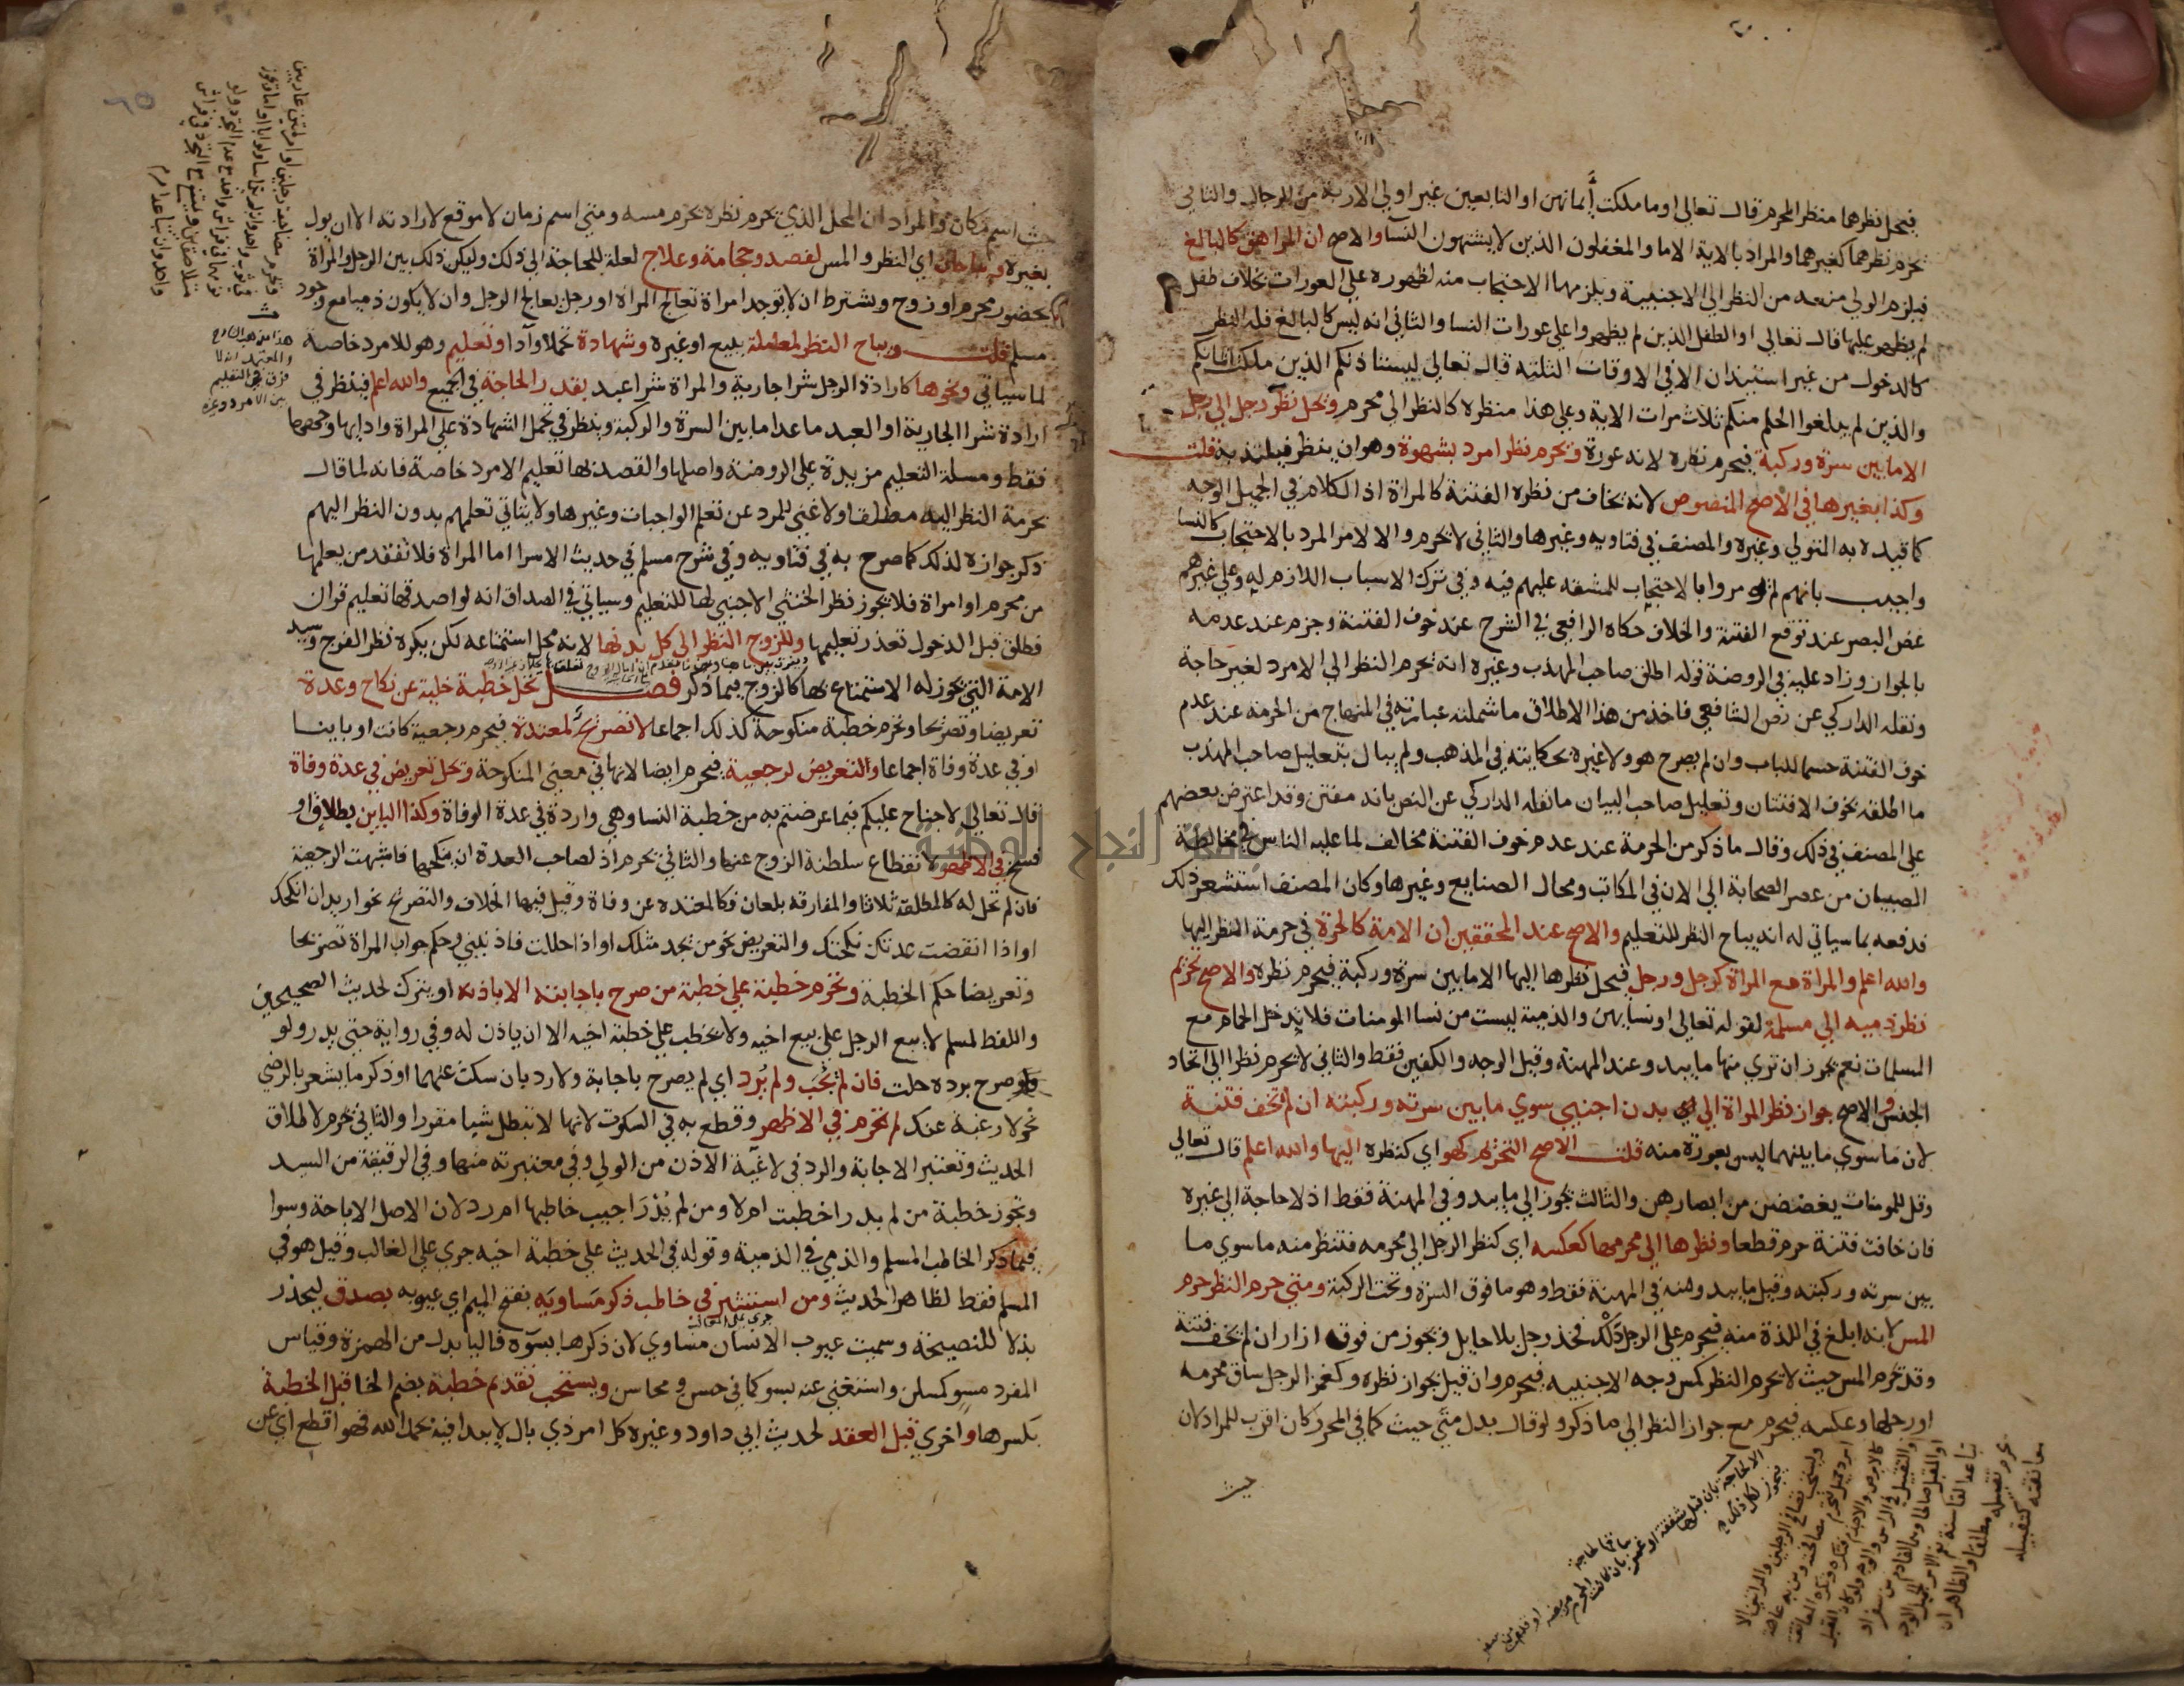 فيحل نظرهما منظر المحرم قال تعالى او ما ملكت أيمانهن او التابعين غير اولي الاربة من الرجال والثاني
يحرم نظرهما كغيرهما والمراد بالاية الاما والمغفلون الذين لا يشتهون النسا والاصح ان المراهق كالبالغ
فيلزم الولي منعه من النظر الى الاجنبية ويلزمها الاحتجاب منه لظهوره على العورات بخلاف طفل
لم يظهر عليها قال تعالى او الطفل الذين لم يظهروا على عورات النسا والثاني انه ليس كالبالغ فله النظر
كالدخول من غير استيذان الا في الاوقات الثلثه قال تعالى ليستاذنكم الذين ملكت ايمانكم
والذين لم يبلغوا الحلم منكم ثلاث مرات الاية وعلى هذا منظره كالنظر الى محرم ويحل نظر رجل الى رجل
الا ما بين سرة وركبة فيحرم نظره لانه عورة ويحرم نظر امرد بشهوة وهو ان ينظر فيلتذ به قلت
وكذا بغيرها في الاصح المنصوص لانه يخاف من نظره الفتنة كالمراة اذ الكلام في الجميل الوجه
كما قيده به المتولي وغيره والمصنف في فتاويه وغيرها والثاني لا يحرم والا لامر المرد بالاحتجاب كالنسا
واجيب بانهم لم يومروا بالاحتجاب للمشقه عليهم فيه وفي ترك الاسباب اللازم له وعلى غيرهم
غض البصر عند توقع الفتنة والخلاف حكاه الرافعي في الشرح عند خوف الفتنة وجزم عند عدمه
بالجواز وزاد عليه في الروضة قوله اطلق صاحب المهذب وغيره انه يحرم النظر الى الامرد لغير حاجة
ونقله الداركي عن نص الشافعي فاخذ من هذا الاطلاق ما شملته عبارته في المنهاج من الحرمة عند عدم
خوف الفتنة حسما للباب وان لم يصرح هو ولا غيره بحكايته في المذهب ولم يبال بتعليل صاحب المهذب
ما اطلقه بخوف الافتتان وتعليل صاحب البيان ما نقله الداركي عن النص بانه مفتن وقد اعترض بعضهم
على المصنف في ذلك وقال ما ذكر من الحرمة عند عدم خوف الفتنة مخالف لما عليه الناس في مخالطة
الصبيان من عصر الصحابة الى الان في المكاتب ومحال الصنايع وغيرها وكان المصنف استشعر ذلك
فدفعه بما سياتي له انه يباح النظر للتعليم والاصح عند المحققين ان الامة كالحرة في حرمة النظر اليها
والله اعلم والمراة مع المراة كرجل ورجل فيحل نظرها اليها الا ما بين سرة وركبة فيحرم نظره والاصح تحريم
نظر ذمية الى مسلمة لقوله تعالى او نسايهن والذمية ليست من نسا المومنات فلا تدخل الحمام مع
المسلمات نعم يجوز ان ترى منها ما يبدو عند المهنة وقيل الوجه والكفين فقط والثاني لا يحرم نظرا الى اتحاد
الجنس والاصح جواز نظر المراة الى بدن اجنبي سوى ما بين سرته وركبته ان لم تخف فتنة
لان ما سوى ما بينهما ليس بعورة منه قلت الاصح التحريم كهو اي كنظره اليها والله اعلم قال تعالى
وقل للمومنات يغضضن من ابصارهن والثالث يجوز الى ما يبدو في المهنة فقط اذ لا حاجة الى غيره
فان خافت فتنة حرم قطعا ونظرها الى محرمها كعكسه اي كنظر الرجل الى محرمه فتنظر منه ما سوى ما
بين سرته وركبته وقيل ما يبدو منه في المهنة فقط وهو ما فوق السرة وتحت الركبة ومتى حرم النظر حرم
المس لانه ابلغ في اللذة منه فيحرم على الرجل دَلْك فخذ رجل بلا حايل ويجوز من فوق ازار ان لم يخف فتنة
وقد يحرم المس حيث لا يحرم النظر كمس وجه الاجنبيه فيحرم وان قيل بجواز نظره وكغمز الرجل ساق محرمه
او رجلها وعكسه فيحرم مع جواز النظر الى ما ذكر ولو قال بدل متى حيث كما في المحرر كان اقرب للمراد لان
حيث
حيث اسم مكان والمراد ان المحل الذي يحرم نظره يحرم مسه ومتى اسم زمان لا موقع لارادته الا ان يول
بغيره ويباحان اي النظر والمس لفصد وحجامة وعلاج لعلة للحاجة الى ذلك وليكن ذلك بين الرجل والمراة
بحضور محرم او زوج ويشترط ان لا توجد امراة تعالج المراة او رجل يعالج الرجل وان لا يكون ذميا مع وجود
مسلم قلت ويباح النظر لمعاملة ببيع او غيره وشهادة تحملا وآدا وتعليم وهو للامرد خاصة
لما سياتي ونحوها كارادة الرجل شرا جارية والمراة شرا عبد بقدر الحاجة في الجميع والله اعلم فينظر في
ارادة شرا الجارية او العبد ما عدا ما بين السرة والركبة وينظر في تحمل الشهادة على المراة وادايها وجهها
فقط ومسلة التعليم مزيدة على الروضة واصلها والقصد بها تعليم الامرد خاصة فانه لما قال
بحرمة النظر اليه مطلقا ولا غنى للمرد عن تعلم الواجبات وغيرها ولا يتاتى تعلمهم بدون النظر اليهم
ذكر جوازه لذلك كما صرح به في فتاويه وفي شرح مسلم في حديث الاسرا اما المراة فلا تفقد من يعلمها
من محرم او امراة فلا يجوز نظر الخنثى الاجنبي لها للتعليم وسياتي في الصداق انه لو اصدقها تعليم قران
فطلق قبل الدخول تعذر تعليمها وللزوج النظر الى كل بدنها لانه محل استمتاعه لكن يكره نظر الفرج وسيد
الامة التي يجوز له الاستمتاع بها كالزوج فيما ذكر فصل تحل خطبة خلية عن نكاح وعدة
تعريضا وتصريحا وتحرم خطبة منكوحة كذلك اجماعا لا تصريح لمعتدة فيحرم رجعية كانت او باينا
او في عدة وفاة اجماعا والتعريض لرجعية فيحرم ايضا لانها في معنى المنكوحة ويحل تعريض في عدة وفاة
قال تعالى لا جناح عليكم فيما عرضتم به من خطبة النسا وهي واردة في عدة الوفاة وكذا البابن بطلاق او
فسخ في الاظهر لانقطاع سلطنة الزوج عنها والثاني يحرم اذ لصاحب العدة ان ينكحها فاشبهت الرجعية
فان لم تحل له كالمطلقة ثلاثا والمفارقه بلعان فكالمعتده عن وفاة وقيل فيها الخلاف والتصريح نحو اريد ان انكحك
او اذا انقضت عدتك نكحتك والتعريض نحو من يجد مثلك او اذا حللت فاذنيني وحكم جواب المراة تصريحا
وتعريضا حكم الخطبة وتحرم خطبة على خطبة من صرح باجابته الا باذنه او يترك لحديث الصحيحين
واللفظ لمسلم لا يبيع الرجل على بيع اخيه ولا يخطب على خطبة اخيه الا ان ياذن له وفي رواية حتى يذر ولو
صرح برده حلت فان لم يُجَب ولم يُرَد اي لم يصرح باجابة ولا رد بان سكت عنهما او ذكر ما يشعر بالرضى
نحو لا رغبة عنك لم تحرم في الاظهر وقطع به في السكوت لانها لا تبطل شيا مقررا والثاني تحرم لاطلاق
الحديث وتعتبر الاجابة والرد في لاغية الاذن من الولي وفي معتبرته منها وفي الرقيقة من السيد
وتجوز خطبة من لم يدر اخطبت ام لا ومن لم يُدْرَ اجيب خاطبها ام رد لان الاصل الاباحة وسوا
فيما ذكر الخاطب المسلم والذمي في الذمية وقوله في الحديث على خطبة اخيه جرى على الغالب وقيل هو في
المسلم فقط لظاهر الحديث ومن استشير في خاطب ذكر مَساوِيَه بفتح الميم اي عيوبه بصدق ليحذر
بذلا للنصيحة وسميت عيوب الانسان مساوي لان ذكرها يسوه فاليا بدل من الهمزة وقياس
المفرد مسو كمسلن واستغني عنه بسو كما في حسن ومحاسن ويستحب تقديم خطبة بضم الخا قبل الخطبة
بكسرها واخرى قبل العقد لحديث ابي داود وغيره كل امر ذي بال لا يبدا فيه بحمد الله فهو اقطع اي عن
جامعة النجاح الوطنية